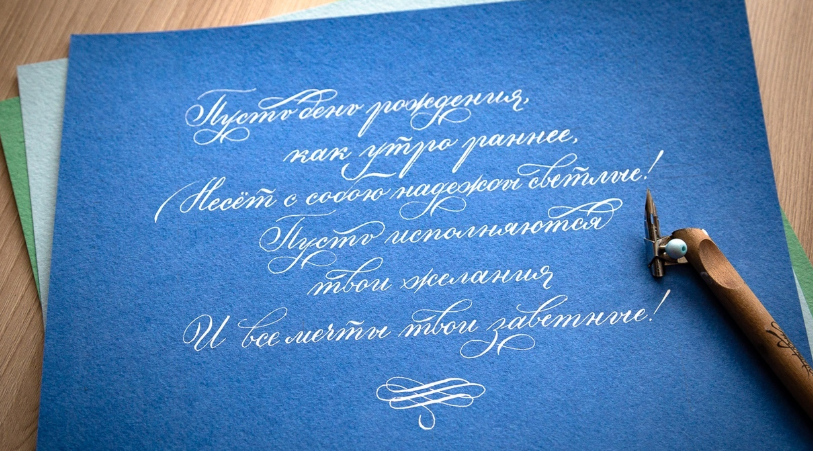 Пусть день рождения,
как утро раннее,
Несёт с собою надежды светлые!
Пусть исполняются
твои желания
И все мечты твои заветные!